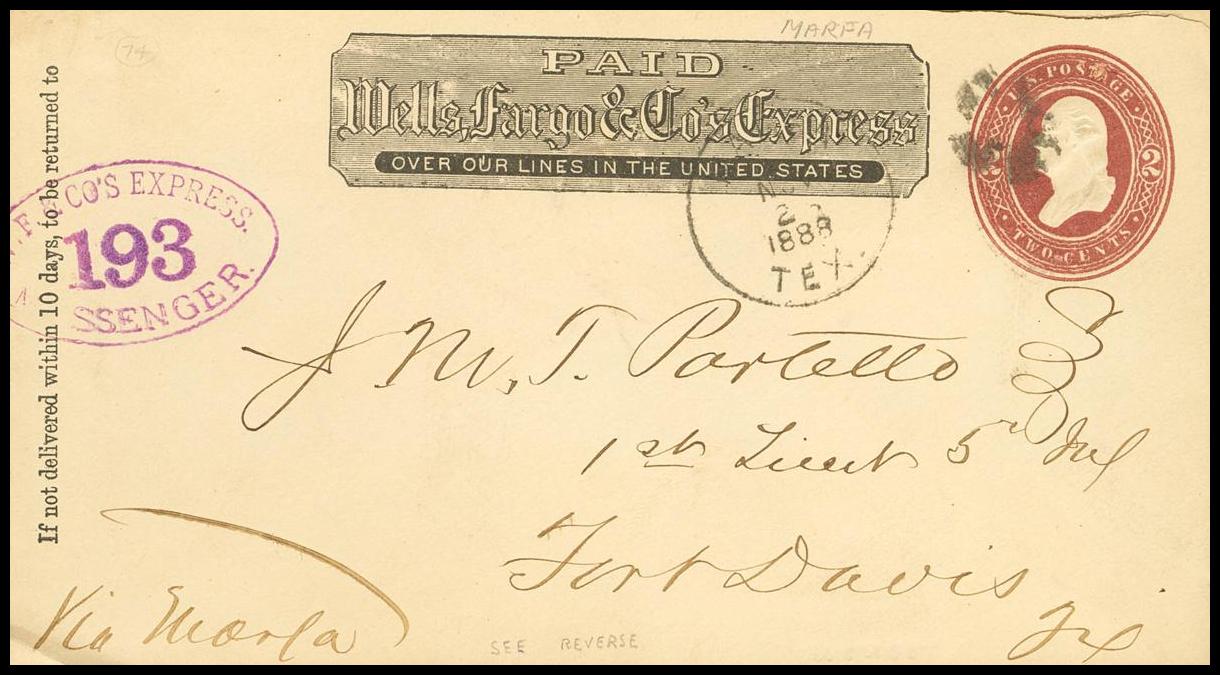 MARFA
74
PAID
Wells, Fargo & Co's Express
OVER OUR LINES IN THE UNITED STATES
U.S. POSTAGE
2 2
TWO CENTS
If not delivered within 10 days, to be returned to
W.F. & CO'S EXPRESS.
193
MESSENGER.
NOV
1888
TEX.
J. M. T. Partello
1st Lieut 5" Inf
Fort Davis
Tex
Via Marfa
SEE REVERSE